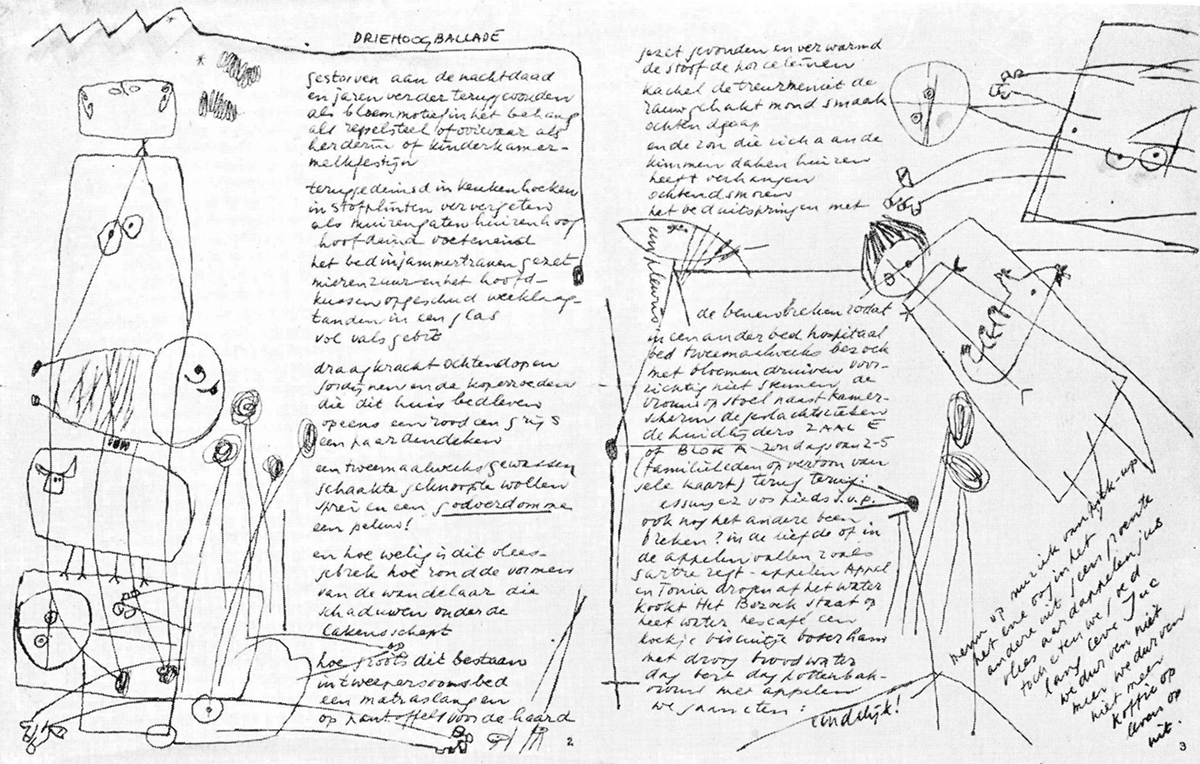 DRIEHOOGBALLADE
gestorven aan de nachtdaad
en jaren verder teruggevonden
als bloemmotief in het behang
als repelsteel of ooievaar als
herderin of kinderkamer-
melkfestijn
teruggedeinsd in keukenhoeken
in stofplinten ver vergeten
als muizengaten huizenhoog
hoofdeind voeteneind
het bed in jammertranen gezet
mierenzuur en het hoofd-
kussen opgeschud weeklaag-
tanden in een glas
vol vals gebit
draagkracht ochtend open
gordijnen en de koperroeden
die dit huis bedleven
opeens een rood een grijs
een paardendeken
een tweemaalweeks gewassen
schaakte geknoopte wollen
sprei en een godverdomme
een peluw!
en hoe welig is dit vlees-
gebrek hoe rond de vormen
van de wandelaar die
schaduwen onder de
lakens schept
hoe groots dit bestaan
in tweepersoonsbed
een matras langen
op pantoffels voor de haard
2
gezet gevonden en verwarmd
de stoof de porceleinen
kachel de treurmenuit de
rauw gehakt mond smaak
ochtendgaap
en de zon die zich aan de
kimmen daken huizen
heeft verhangen
ochtendsmoren
het bed uitspringen met
een pleuris
de benen breken zodat
in een ander bed hospitaal
bed tweemaalweeks bezoek
met bloemen druiven voor-
zichtig niet steunen de
vrouw op stoel naast kamer-
scherm de geslachtszieken
de huidlijders ZAAL E
of BLOK A zondags van 2-5
(familieleden op vertoon van
gele kaart) terug terug:
essuiez vos pieds s.v.p.
ook nog het andere been
breken? in de liefde of in
de appelen vallen zoals
Sartre zegt appelen Appel
en Tonia drogen af het water
kookt Het Bezoek staat op
heet water nescafé een
koekje biscuitje boterham
met droog brood water
dag kert dag pottenbak-
rond met appelen
we gaan eten:
eindelijk!
op muziek van pick-up
het ene oog in het
andere uit geen groente
vlees aardappelen jus
toch eten we goed
lang leve Luc
we durven niet
meer we durven
niet meer
koffie op
leven op
uit.
3